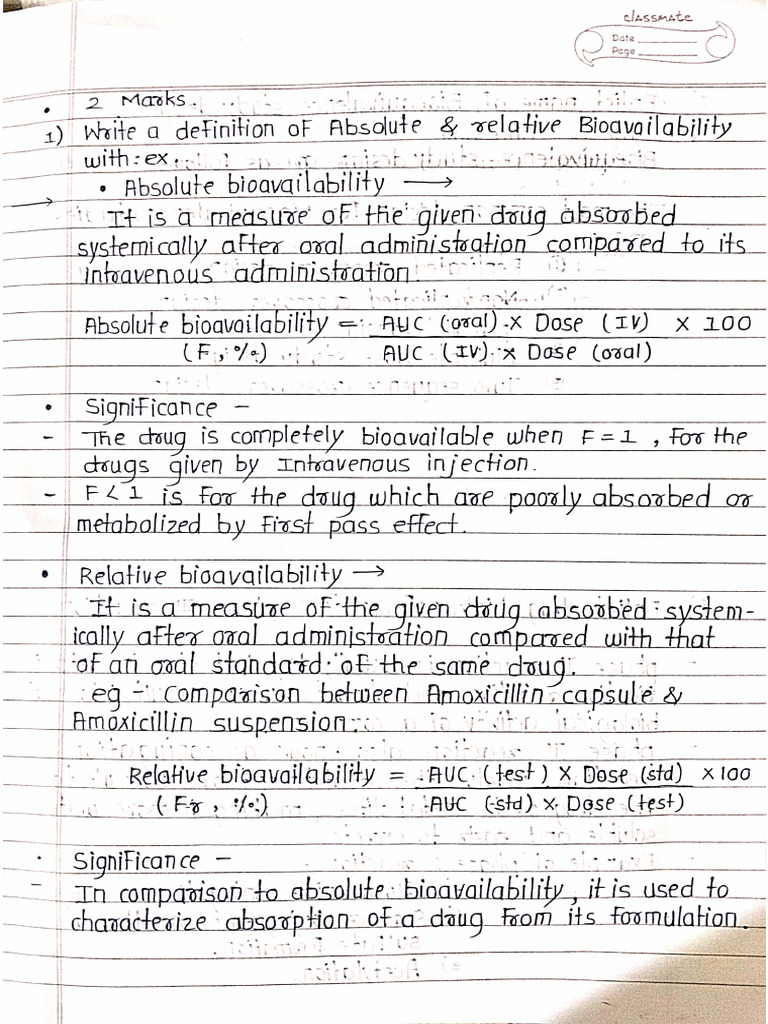 classmate
Date
Page
• 2 Marks.
1) Write a definition of Absolute & relative Bioavailability
with ex.
• Absolute bioavailability →
→ It is a measure of the given drug absorbed
systemically after oral administration compared to its
intravenous administration.
Absolute bioavailability = AUC (oral) × Dose (IV) × 100
(F, %) AUC (IV) × Dose (oral)
• Significance -
- The drug is completely bioavailable when F=1, for the
drugs given by Intravenous injection.
- F<1 is for the drug which are poorly absorbed or
metabolized by first pass effect.
• Relative bioavailability →
It is a measure of the given drug absorbed system-
ically after oral administration compared with that
of an oral standard of the same drug.
eg - comparison between Amoxicillin capsule &
Amoxicillin suspension.
Relative bioavailability = AUC (test) × Dose (std) ×100
(Fr, %) AUC (std) × Dose (test)
• Significance -
- In comparison to absolute bioavailability, it is used to
characterize absorption of a drug from its formulation.